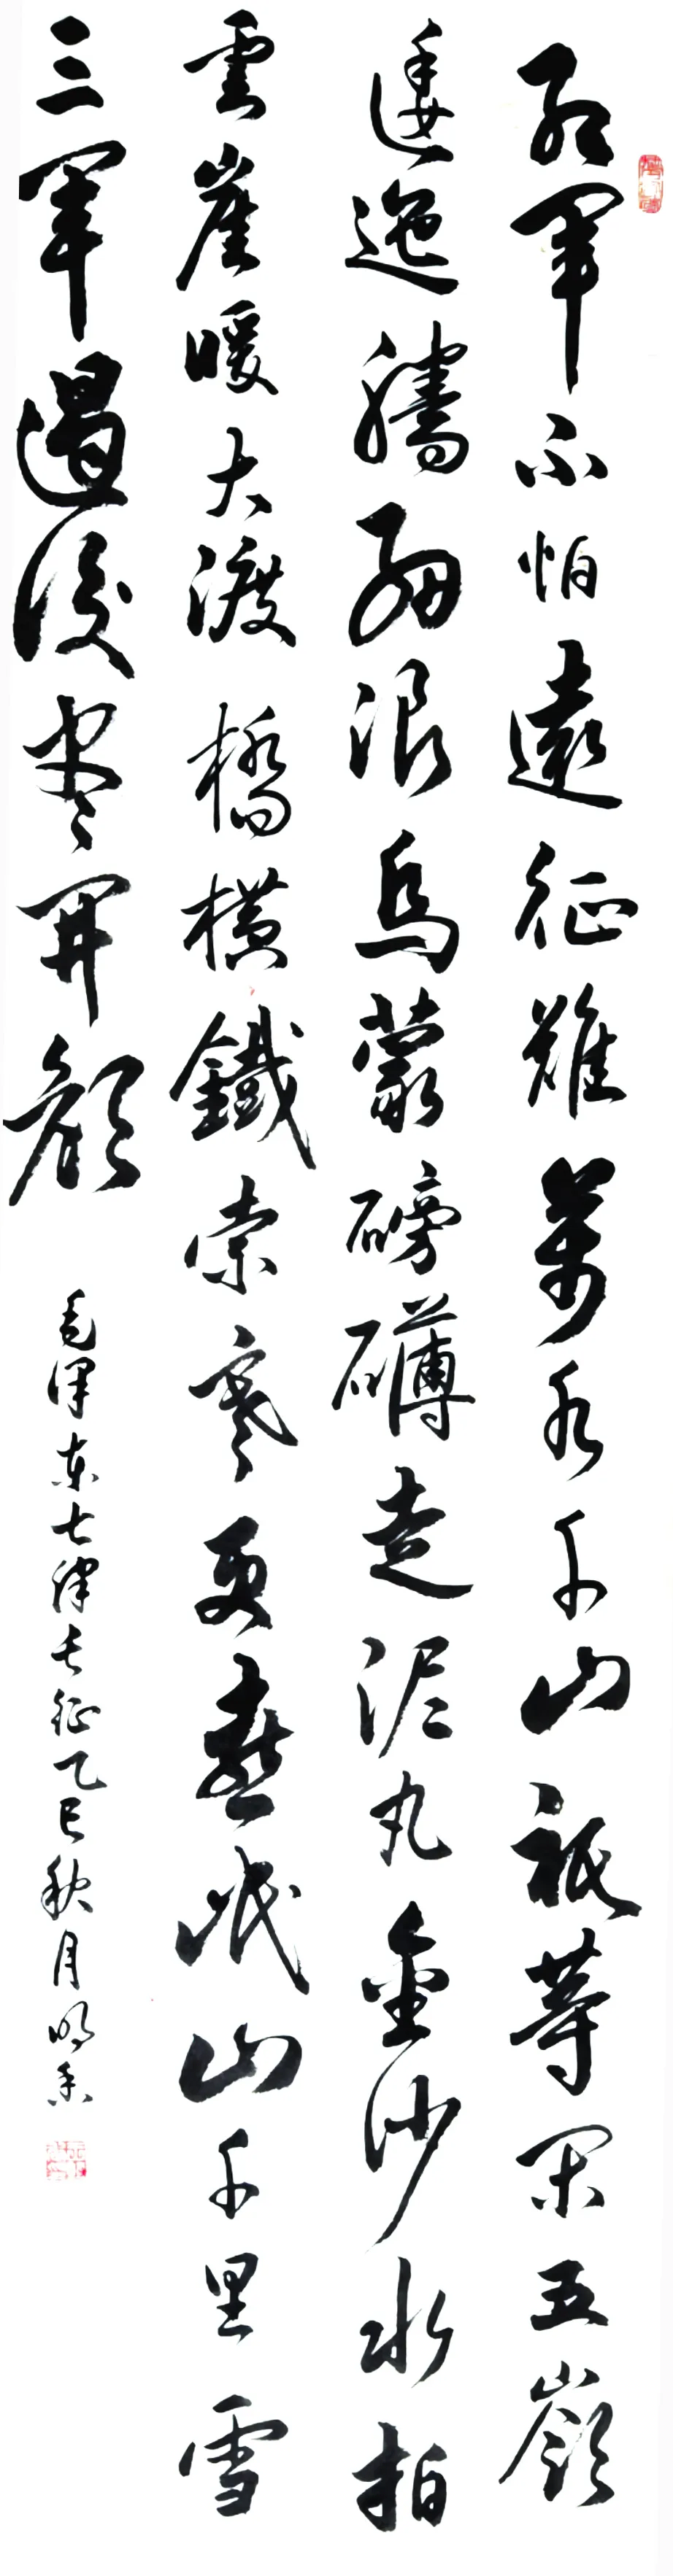 紅軍不怕遠征難萬水千山祇等閑五嶺
逶迤騰細浪烏蒙磅礴走泥丸金沙水拍
雲崖暖大渡橋橫鐵索寒更喜岷山千里雪
三軍過後盡開顏
毛澤東七律長征乙巳秋月明